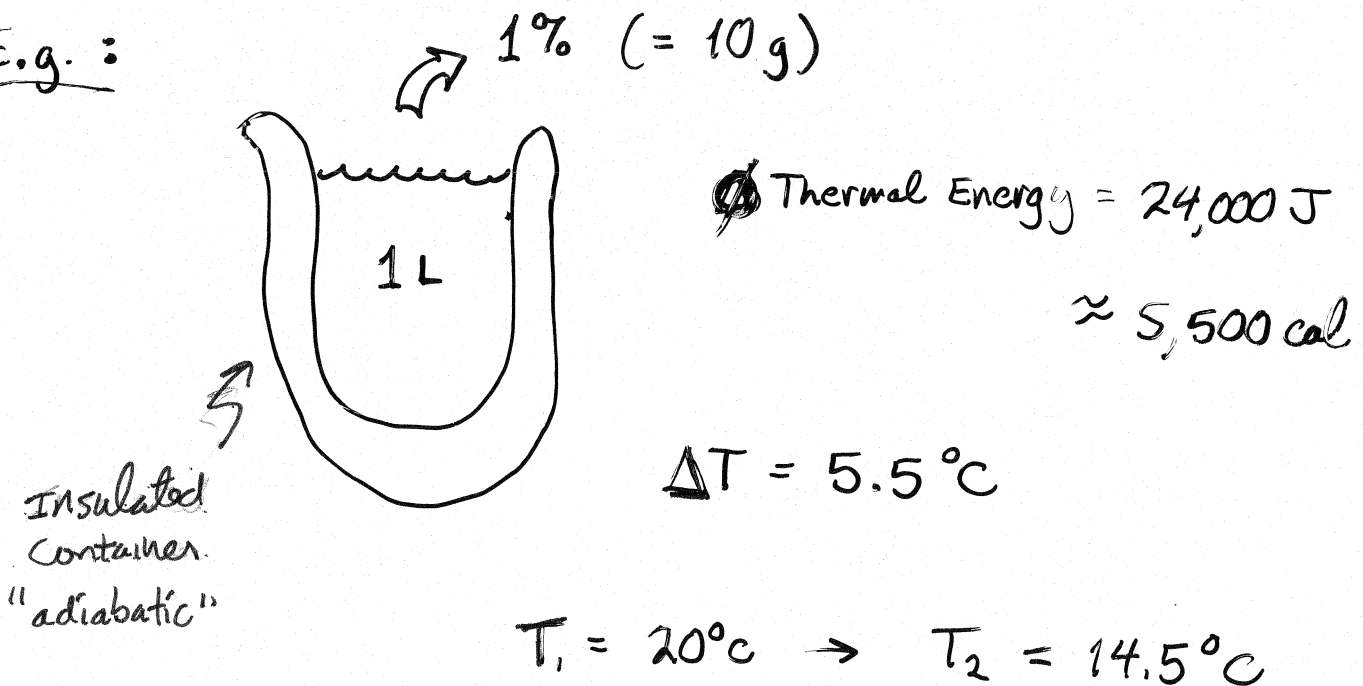 E.g. :
1% (= 10 g)
Thermal Energy = 24,000 J
≈ 5,500 cal
1 L
ΔT = 5.5 °C
Insulated
Container.
"adiabatic"
T₁ = 20°C → T₂ = 14.5°C